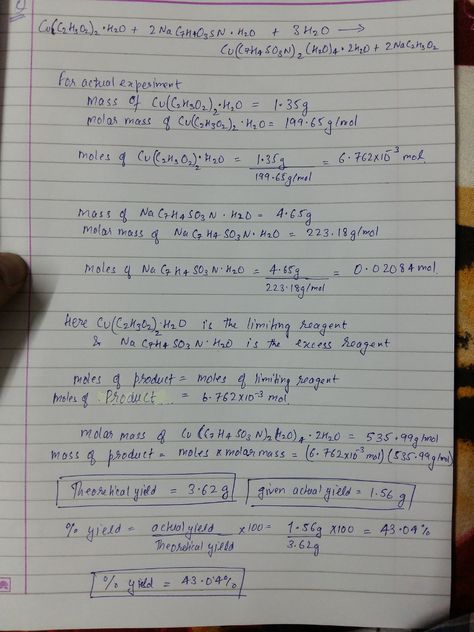 Cu(C2H3O2)2·H2O + 2NaC7H4O3SN·H2O + 3H2O ⟶
Cu(C7H4SO3N)2(H2O)4·2H2O + 2NaC2H3O2
For actual experiment
mass of Cu(C2H3O2)2·H2O = 1.35g
molar mass of Cu(C2H3O2)2·H2O = 199.65g/mol
moles of Cu(C2H3O2)2·H2O = 1.35g / 199.65g/mol = 6.762×10⁻³ mol.
Mass of NaC7H4SO3N·H2O = 4.65g
molar mass of NaC7H4SO3N·H2O = 223.18g/mol
moles of NaC7H4SO3N·H2O = 4.65g / 223.18g/mol = 0.02084 mol.
Here Cu(C2H3O2)2·H2O is the limiting reagent
& NaC7H4SO3N·H2O is the excess reagent
moles of product = moles of limiting reagent
moles of Product = 6.762×10⁻³ mol.
molar mass of Cu(C7H4SO3N)2(H2O)4·2H2O = 535.99g/mol
mass of product = moles × molar mass = (6.762×10⁻³ mol)(535.99g/mol)
Theoretical yield = 3.62g given actual yield = 1.56g
% yield = actual yield / Theoretical yield ×100 = 1.56g / 3.62g ×100 = 43.04%
% yield = 43.04%